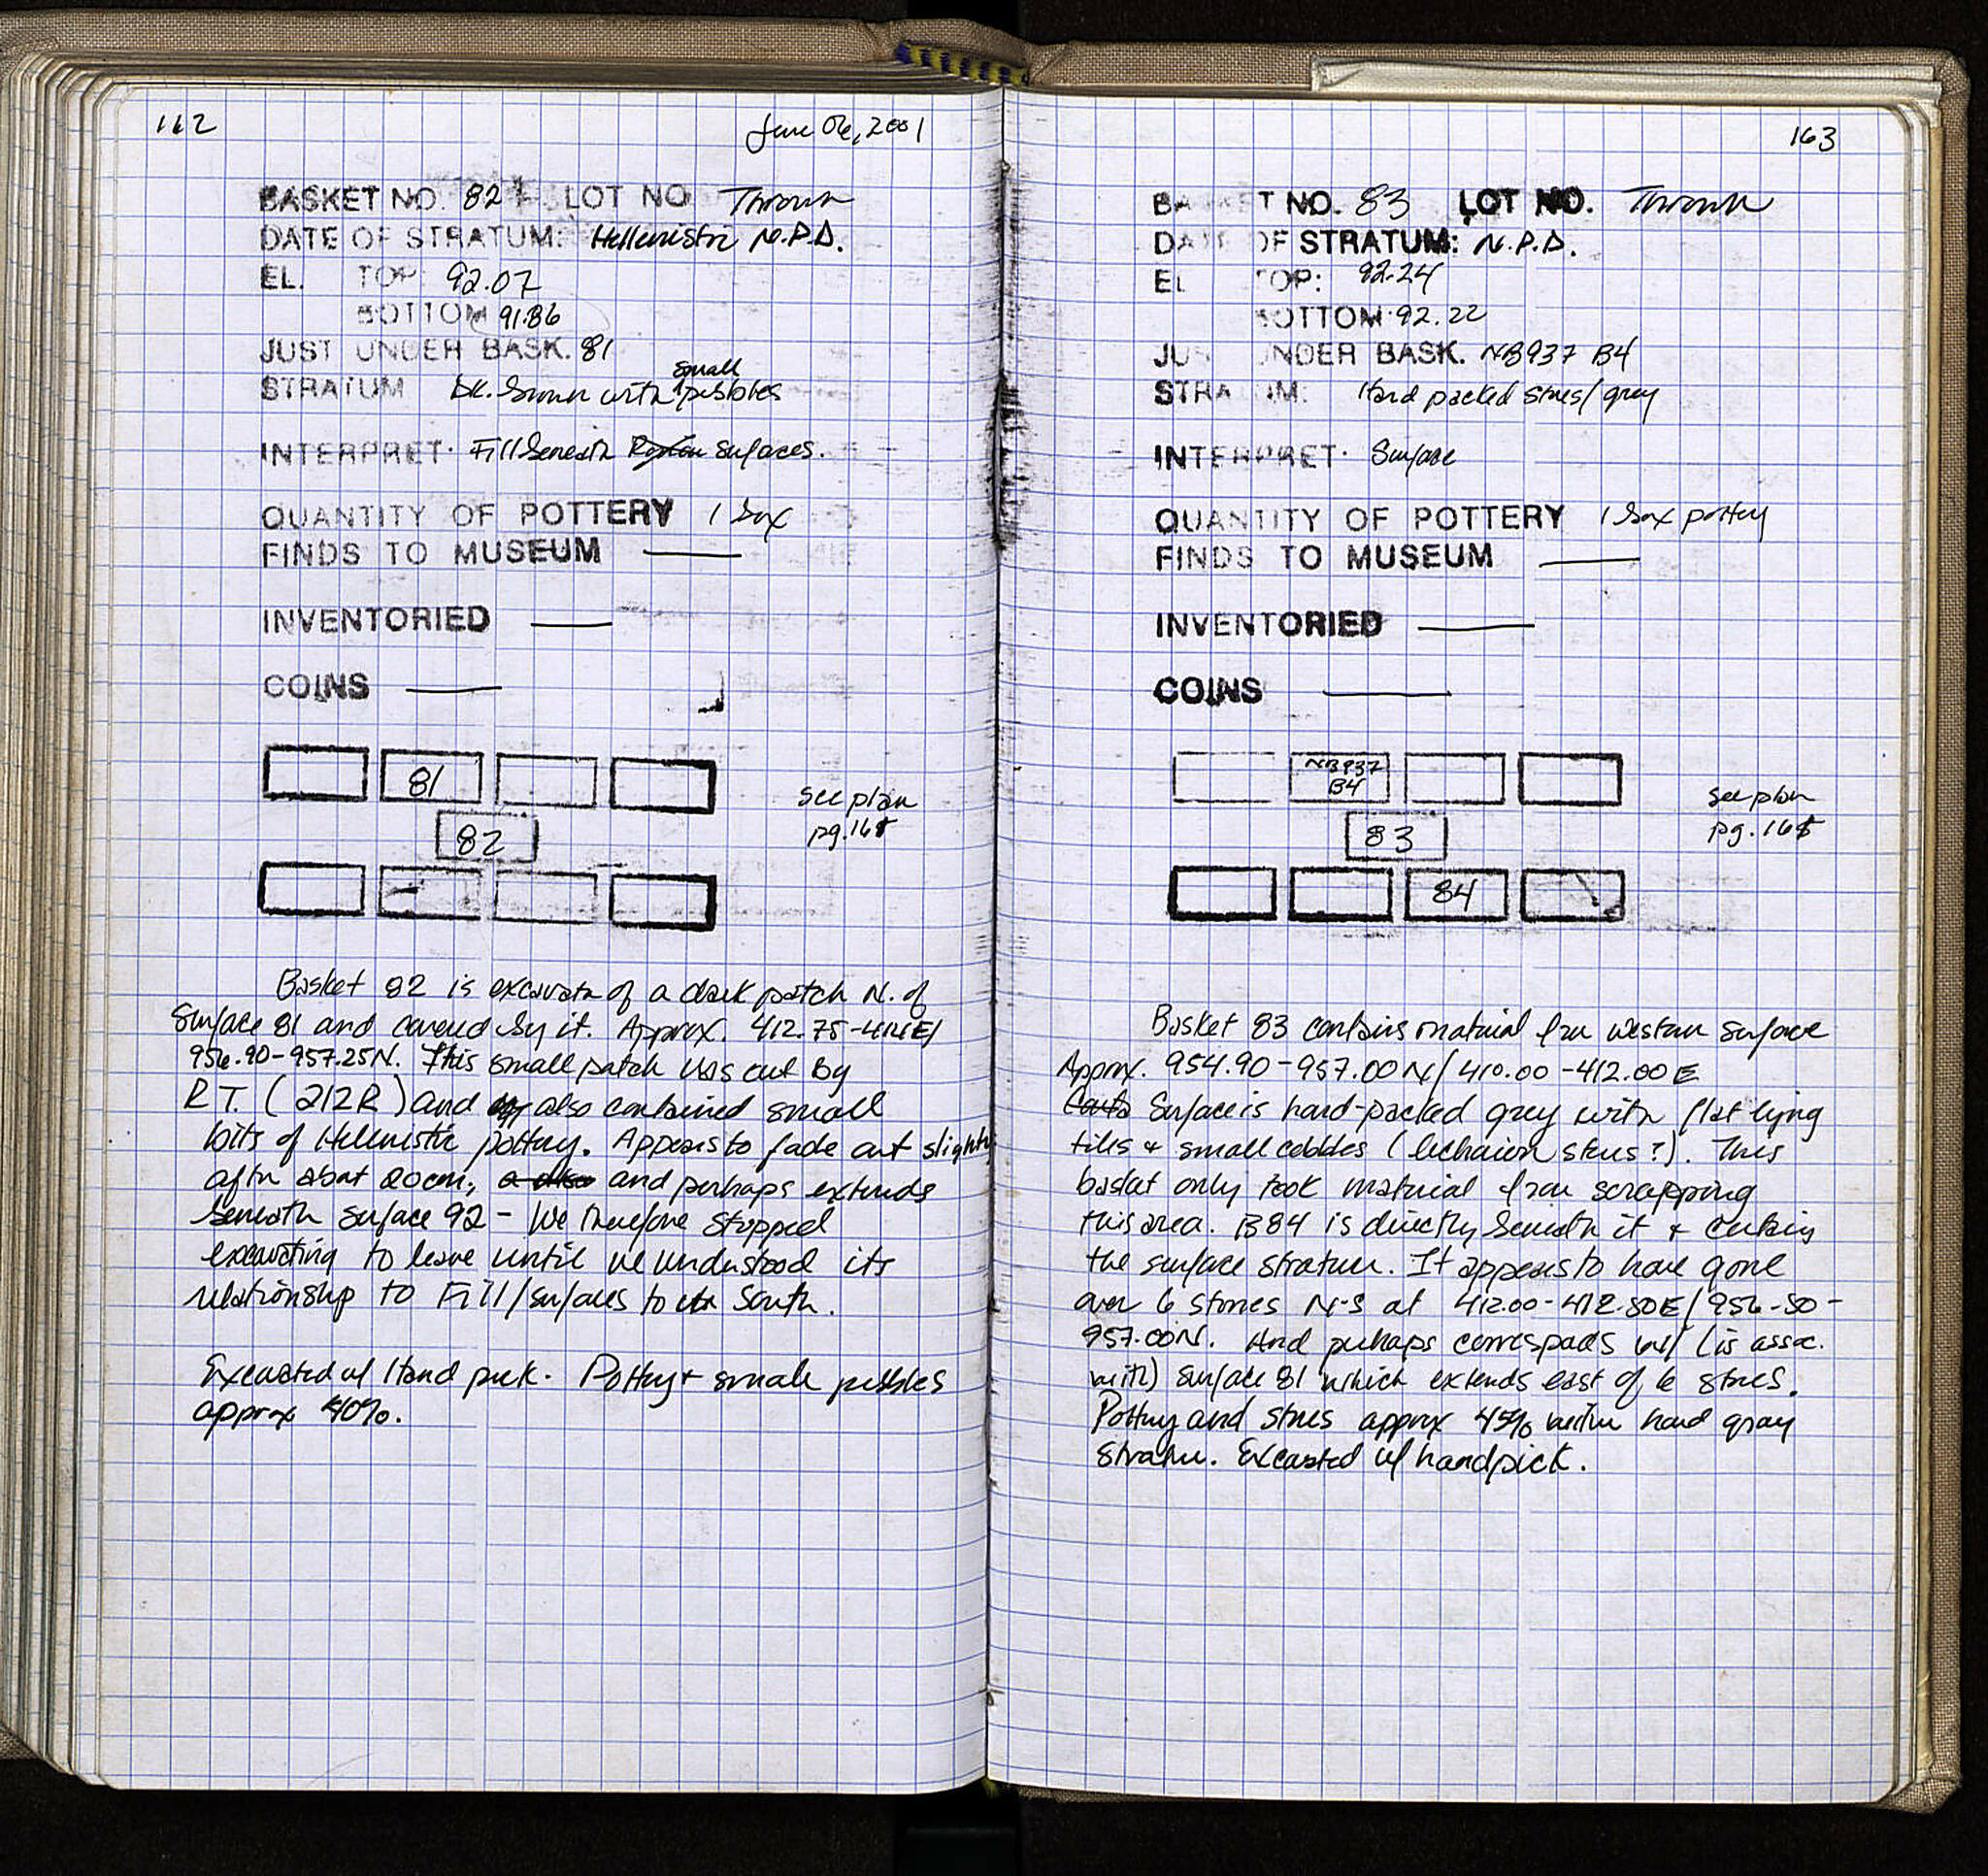 162
June 06, 2001
BASKET NO. 82 LOT NO Thrown
DATE OF STRATUM: Hellenistic N.P.D.
EL. TOP: 92.07
BOTTOM 91.86
JUST UNDER BASK. 81
small
STRATUM Dk. brown with pebbles
INTERPRET. Fill beneath Roman surfaces.
QUANTITY OF POTTERY 1 box
FINDS TO MUSEUM —
INVENTORIED —
COINS —
81
82
see plan
pg. 168
Basket 82 is excavatn of a dark patch N. of
Surface 81 and covered by it. Approx. 412.75-414E/
956.90-957.25N. This small patch was cut by
R.T. (212R) and also contained small
bits of Hellenistic pottery. Appears to fade out slightly
aftr about 20cm, and perhaps extends
beneath surface 92 - We therefore stopped
excavating to leave until we understood its
relationship to Fill/surfaces to South.
Excavated w/ Hand pick. Pottery + small pebbles
approx 40%.
163
BA T NO. 83 LOT NO. Thrown
DA OF STRATUM: N.P.D.
EL OP: 92.24
OTTOM 92.22
JUS NDER BASK. NB937 B4
STRA UM: Hard packed stones/grey
INTERPRET. Surface
QUANTITY OF POTTERY 1 box pottery
FINDS TO MUSEUM —
INVENTORIED —
COINS —
NB937
B4
83
84
see plan
pg. 168
Basket 83 contains material from western surface
Approx. 954.90-957.00N/410.00-412.00E
Surface is hard-packed grey with flat lying
tiles + small cobbles (lechaion stones?). This
basket only took material from scrapping
this area. B84 is directly beneath it + cutting
the surface stratum. It appears to have gone
over 6 stones N-S at 412.00-412.80E/956.50-
957.00N. And perhaps correspads w/ (is assoc.
with) surface 81 which extends east of 6 stones.
Pottery and stones approx 45% within hard gray
stratum. Excavated w/ handpick.